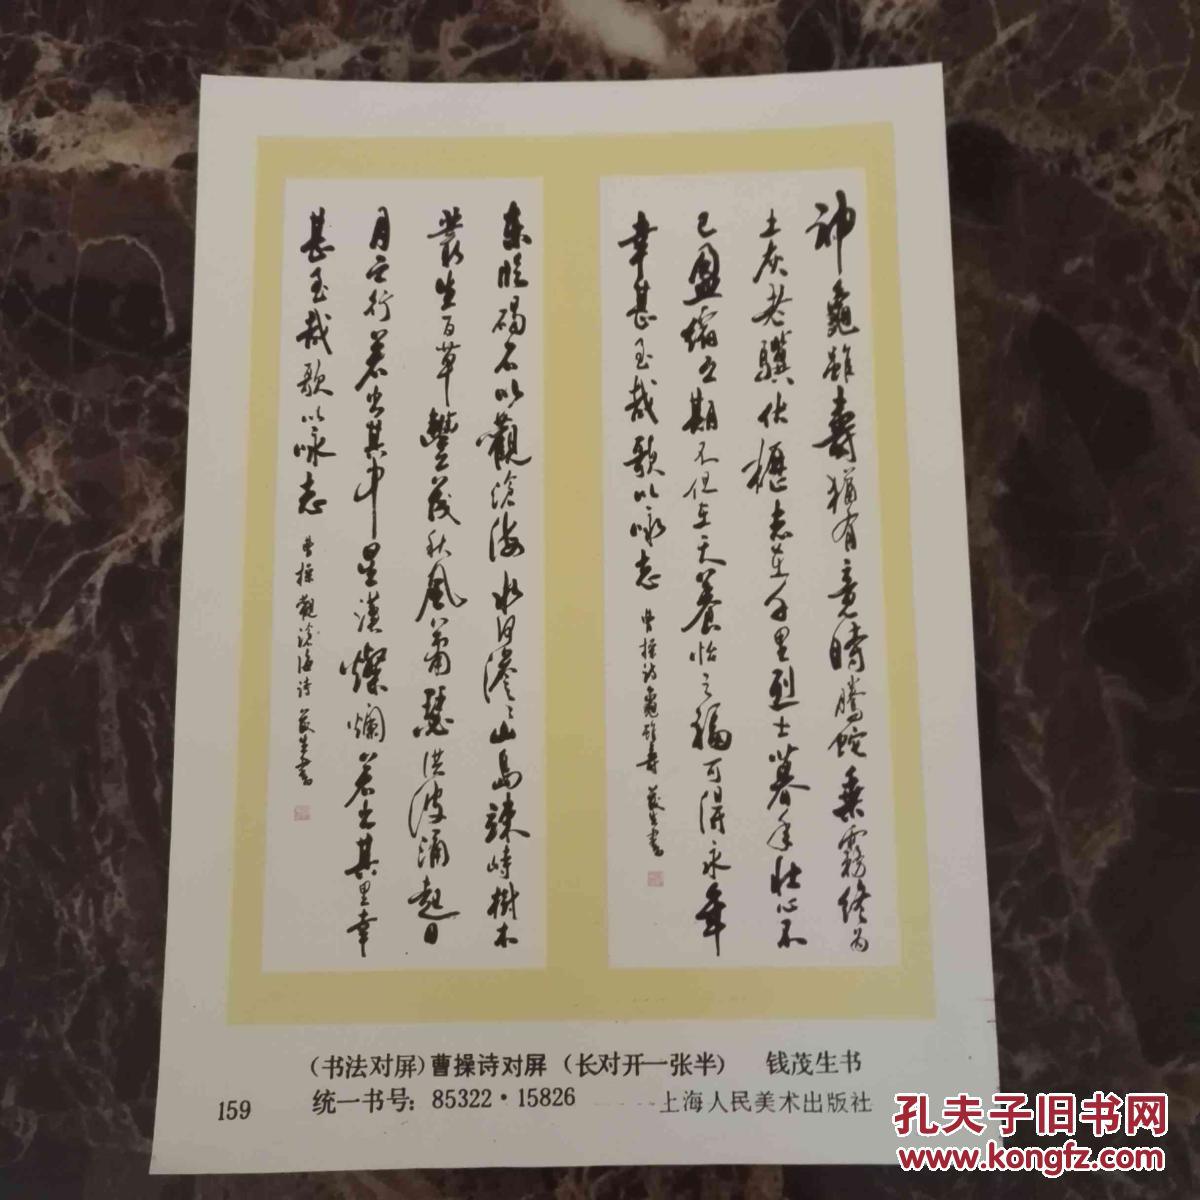 神龜雖壽猶有竟時騰蛇乘霧終為
土灰老驥伏櫪志在千里烈士暮年壯心不
已盈縮之期不但在天養怡之福可得永年
幸甚至哉歌以咏志 曹操詩龜雖壽 茂生書
東臨碣石以觀滄海水何澹〻山島竦峙樹木
叢生百草豐茂秋風蕭瑟洪波涌起日
月之行若出其中星漢燦爛若出其里幸
甚至哉歌以咏志 曹操觀滄海詩 茂生書
(书法对屏)曹操诗对屏 (长对开一张半) 钱茂生书
159 统一书号: 85322·15826 上海人民美术出版社
孔夫子旧书网
www.kongfz.com